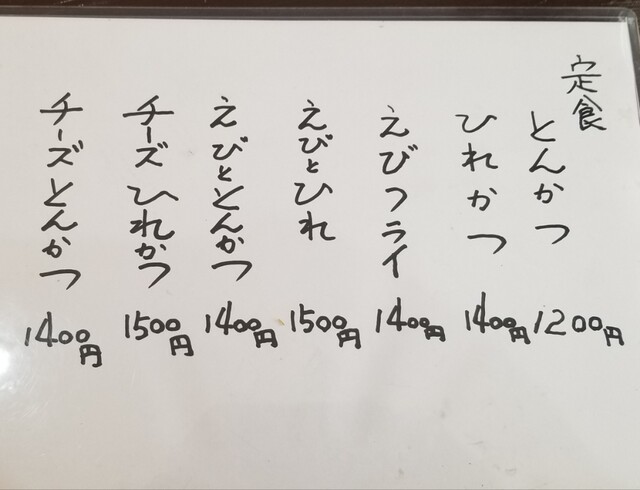 定食
とんかつ 1200円
ひれかつ 1400円
えびフライ 1400円
えびとひれ 1500円
えびととんかつ 1400円
チーズひれかつ 1500円
チーズとんかつ 1400円